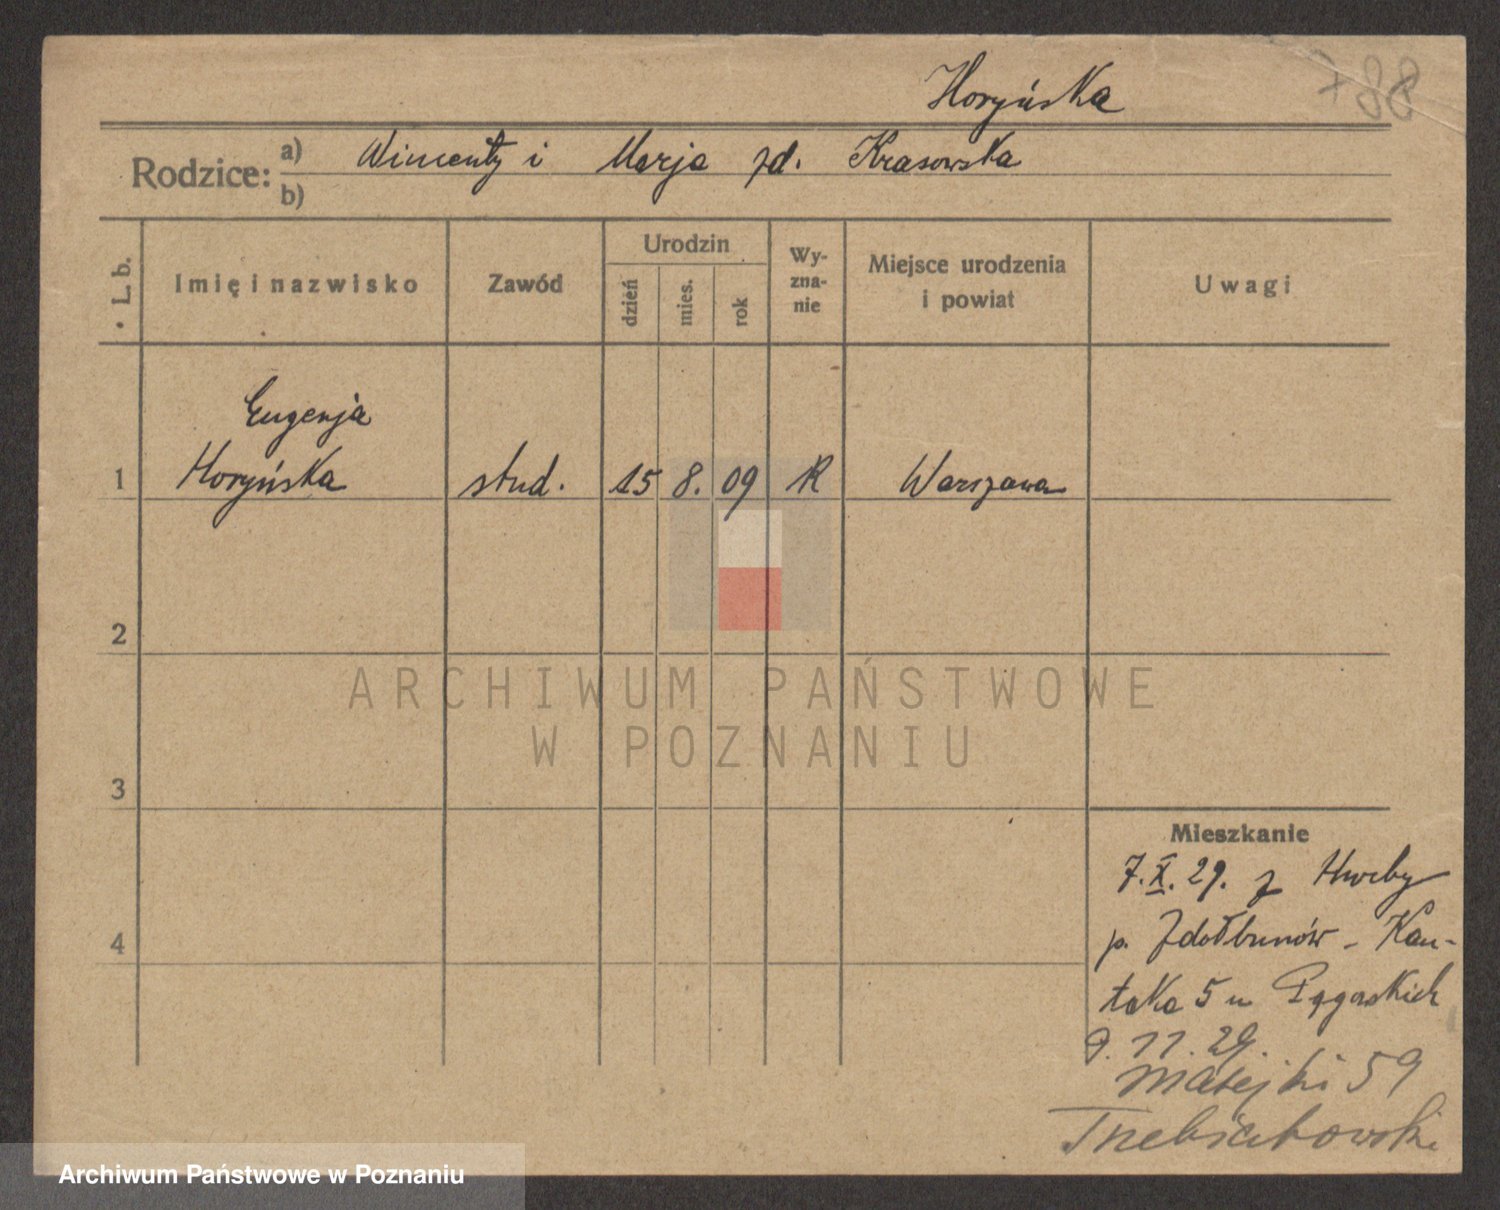 Horyńska
788
Rodzice: a) Wincenty i Marja zd. Krasowska
b)
L. b.
Imię i nazwisko
Zawód
Urodzin
dzień
mies.
rok
Wy-
zna-
nie
Miejsce urodzenia
i powiat
Uwagi
Eugenja
1 Horyńska stud. 15 8. 09 R Warszawa
2
3
4
Mieszkanie
7.X.29. z
p. Zdołbunów - Kan-
taka 5 u
9. 11. 29.
Matejki 59
ARCHIWUM PAŃSTWOWE
W POZNANIU
Archiwum Państwowe w Poznaniu